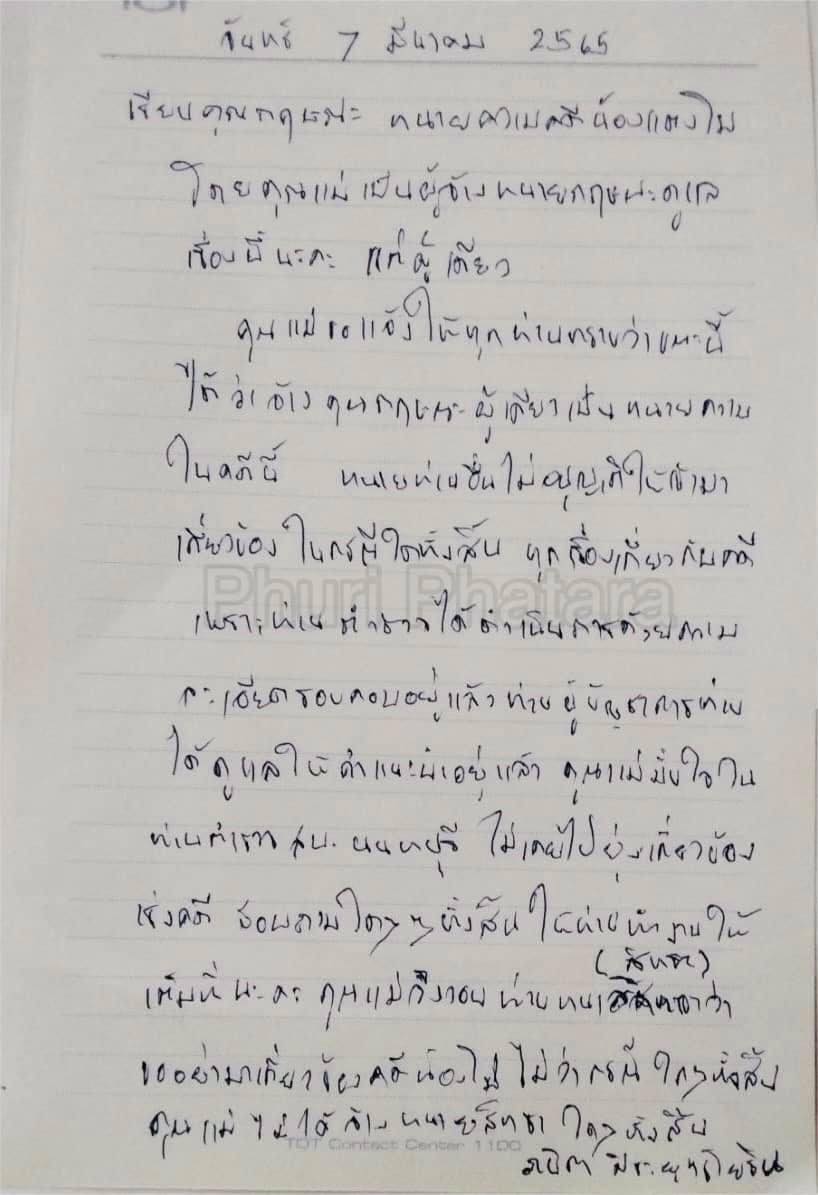 จันทร์ 7 มีนาคม 2565
เรียนคุณกฤษณะ ทนายความคดีน้องแตงโม
โดยคุณแม่เป็นผู้จ้างทนายกฤษณะดูแล
เรื่องนี้นะคะ แต่ผู้เดียว
คุณแม่ขอแจ้งให้ทุกท่านทราบว่าขณะนี้
ได้ว่าจ้างคุณกฤษณะผู้เดียวเป็นทนายความ
ในคดีนี้ ทนายท่านอื่นไม่อนุญาติให้เข้ามา
เกี่ยวข้องในกรณีใดทั้งสิ้น ทุกเรื่องเกี่ยวกับคดี
Phuri Phatara
เพราะท่านตำรวจได้ดำเนินการด้วยความ
ละเอียดรอบคอบอยู่แล้วท่านผู้บัญชาการท่าน
ได้ดูแลให้คำแนะนำอยู่แล้ว คุณแม่มั่นใจใน
ท่านตำรวจ สน. นนทบุรี ไม่เคยไปยุ่งเกี่ยวข้อง
เรื่องคดี สอบถามใดๆ ๆ ทั้งสิ้น ให้ท่านทำงานให้
(สิทธา)
เต็มที่นะคะ คุณแม่จึงวอนท่านทนายว่า
ขออย่ามาเกี่ยวข้องคดีน้องโม ไม่ว่ากรณีใดๆทั้งสิ้น
คุณแม่ไม่ได้จ้างทนายสิทธาใดๆทั้งสิ้น
TOT Contact Center 1100
ภนิดา ศิระยุทธโยธิน